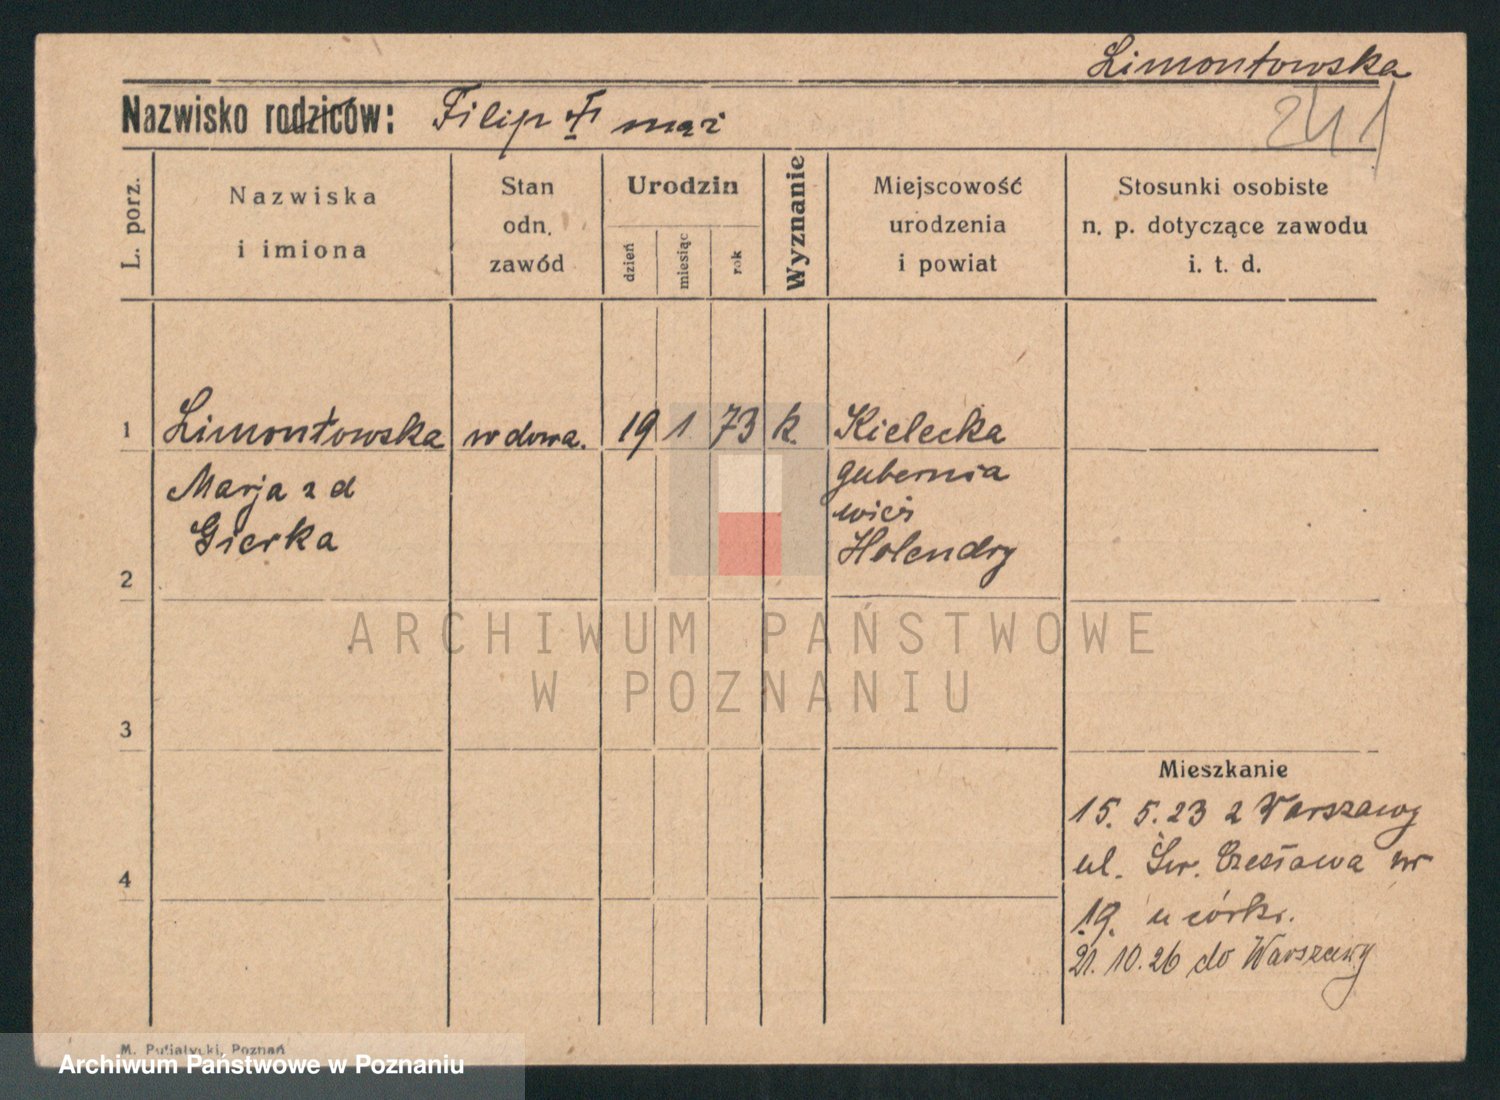 Limontowska
241
Nazwisko rodziców: Filip † mąż
L. porz.
Nazwiska
i imiona
Stan
odn.
zawód
Urodzin
dzień
miesiąc
rok
Wyznanie
Miejscowość
urodzenia
i powiat
Stosunki osobiste
n. p. dotyczące zawodu
i. t. d.
1 Limontowska wdowa. 19 1 73 k. Kielecka
Marja z d gubernia
Gierka wieś
Holendry
2
3
Mieszkanie
15. 5. 23 z Warszawy
ul. Św. Czesława nr
4
19. u córki.
21. 10. 26 do Warszawy
ARCHIWUM PAŃSTWOWE
W POZNANIU
M. Putiatycki, Poznań
Archiwum Państwowe w Poznaniu